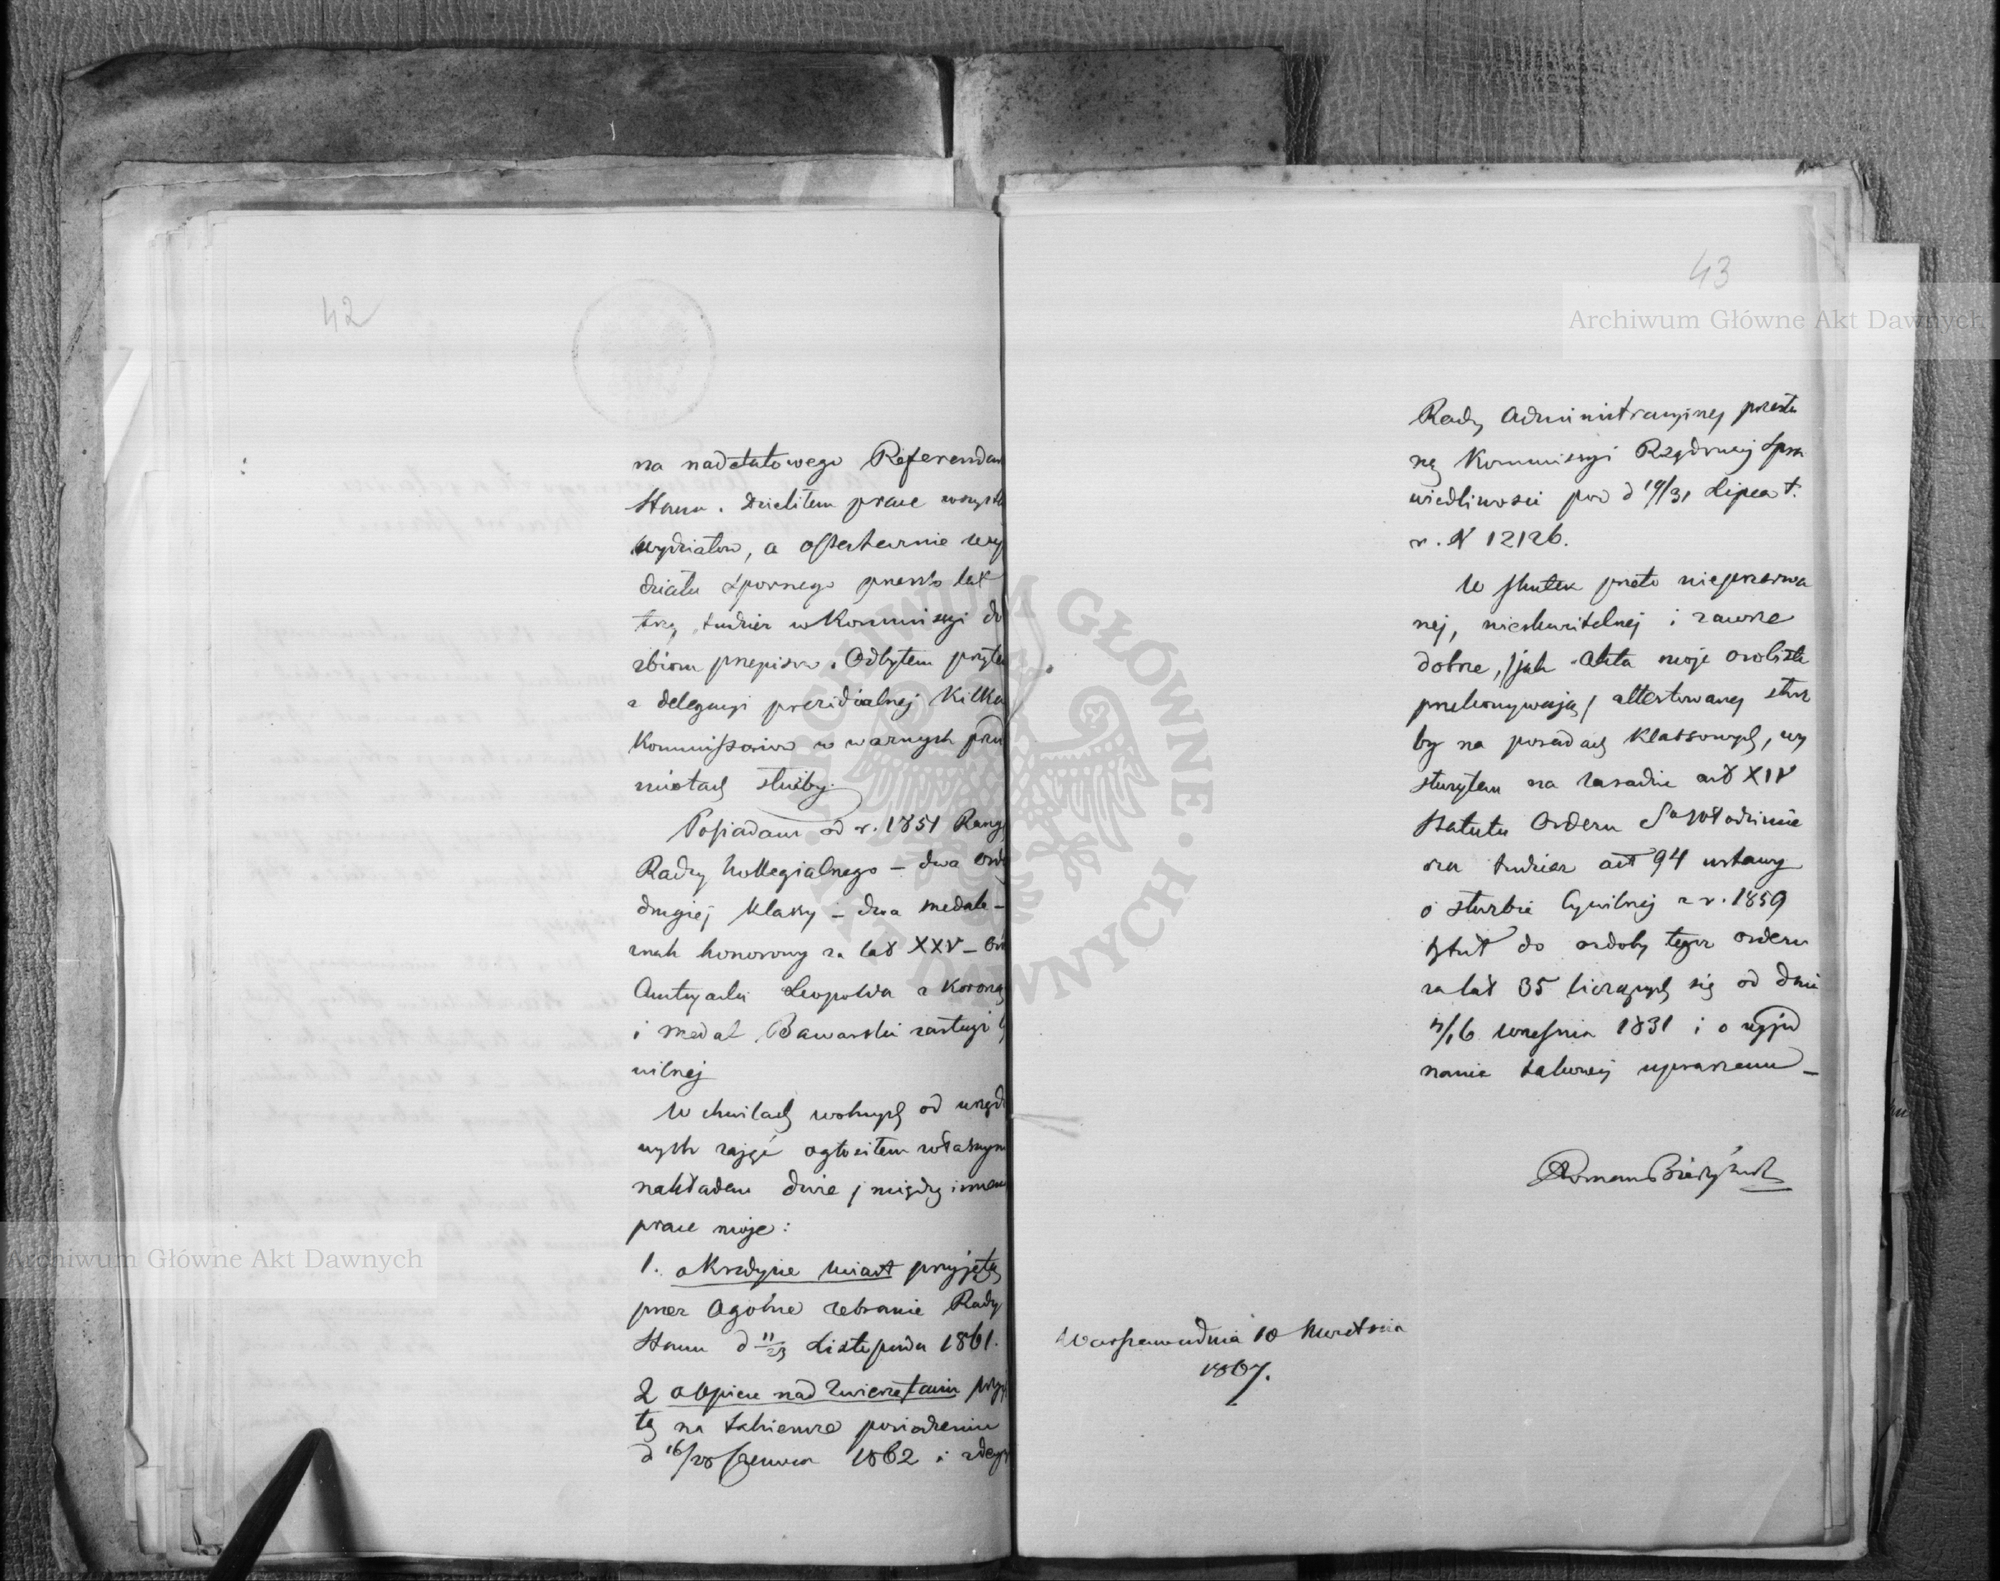 42
na nadetatowego Referendar
Stanu. Dzieliłem prace wszystk
wydziałów, a ostatecznie wy
działu spornego przeszło lat
trzy, tudzież w Kommissyi do
zbioru przepisów. Odbyłem przytem
z delegacyi prezidialnej kilka
Kommissoriów w ważnych prze
miotach służby.
Posiadam od r. 1851 Rangę
Radzy Kollegialnego – dwa orde
drugiej klassy – dwa medale –
znak honorowy za lat XXV – Ord
Austryacki Leopolda z Koroną
i medal Bawarski zasługi cy
wilnej
W chwilach wolnych od urzędo
wych zajęć ogłosiłem własnym
nakładem dwie / między innemi
prace moje:
1. o Kredycie miast przyjętą
przez Ogólne zebranie Rady
Stanu d 11/23 Listopada 1861.
2 o Opiece nad Zwierzętami przyję
tą na takiemże posiedzeniu
d 16/28 Czerwca 1862 i
43
Rady Administracyjnej przesła
ną Kommissyi Rządowej Spra
wiedliwości pod d 19/31 Lipca t.
r. N 12126.
W skutek przeto nieprzerwa
nej, nieskazitelnej i zawsze
dobrze, / jak Akta moje osobiste
przekonywają / attestowanej służ
by na posadach klassowych, wy
służyłem na zasadzie art XIV
Statutu Orderu Sgo Włodzimie
rza tudzież art 94 ustawy
o służbie Cywilnej z r. 1859
tytuł do ozdoby tegoż orderu
za lat 35 liczących się od dnia
4/16 września 1831 i o wyjed
nanie takowej upraszam –
Roman
Warszawa dnia 10 Kwietnia
1867.
Archiwum Główne Akt Dawnych
Archiwum Główne Akt Dawnych
ARCHIWUM GŁÓWNE AKT DAWNYCH